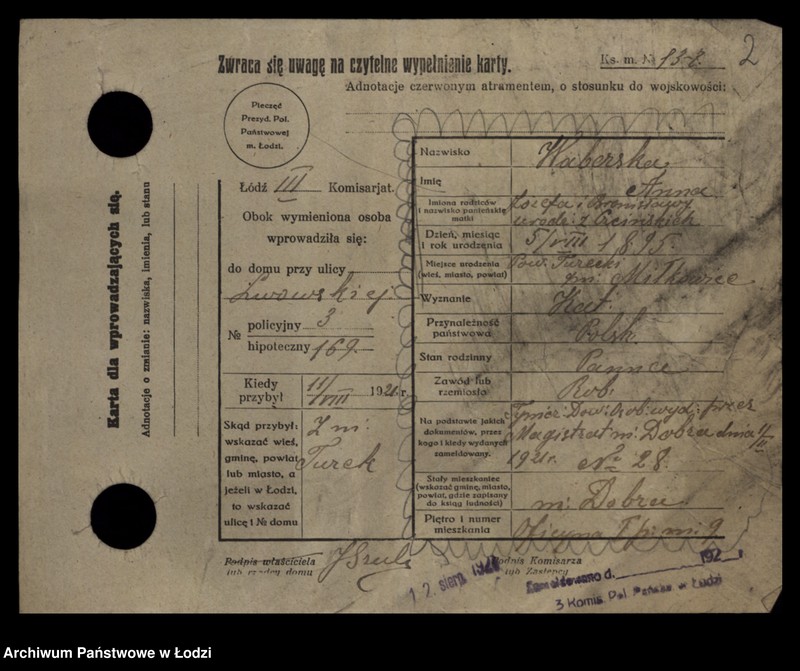 2
Zwraca się uwagę na czytelne wypełnianie karty.
Ks. m. №
Adnotacje czerwonym atramentem, o stosunku do wojskowości:
Karta dla wprowadzających się.
Adnotacje o zmianie: nazwiska, imienia, lub stanu
Pieczęć
Prezyd. Pol.
Państwowej
m. Łodzi.
Łódź III Komisarjat.
Obok wymieniona osoba
wprowadziła się:
do domu przy ulicy
Lwowskiej
№ policyjny 3
hipoteczny 169
Kiedy przybył 11/VIII 1921 r.
Skąd przybył:
wskazać wieś,
gminę, powiat
lub miasto, a
jeżeli w Łodzi,
to wskazać
ulicę i № domu
Z m.
Turek
Podpis właściciela
lub rządcy domu
Nazwisko Waberska
Imię Anna
Imiona rodziców
i nazwisko panieńskie
matki
Józefa i Bronisławy
urodz. z
Dzień, miesiąc
i rok urodzenia
5/VIII 1895.
Miejsce urodzenia
(wieś, miasto, powiat)
Pow. Turecki
gm.
Wyznanie Kat.
Przynależność
państwowa
Polsk
Stan rodzinny Panna
Zawód lub
rzemiosło
Rob.
Na podstawie jakich
dokumentów, przez
kogo i kiedy wydanych
zameldowany.
Tymcz. Dow. Osob. wyd. przez
Magistrat m. Dobra dnia
1921 r. № 28.
Stały mieszkaniec
(wskazać gminę, miasto,
powiat, gdzie zapisany
do ksiąg ludności)
m. Dobra
Piętro i numer
mieszkania
Oficyna I p. m. 9
Podpis Komisarza
lub Zastępcy
12. sierp. 1921
Zameldowano d. 192
3 Komis. Pol. Państw. w Łodzi
Archiwum Państwowe w Łodzi